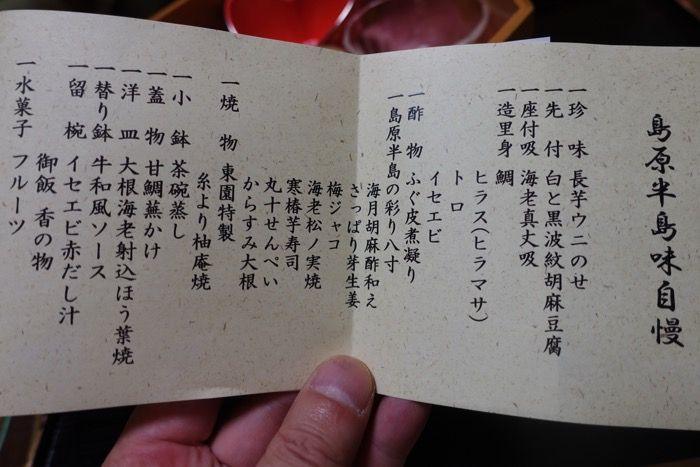 島原半島味自慢
一珍　味　長芋ウニのせ
一先　付　白と黒波紋胡麻豆腐
一座付吸　海老真丈吸
一造里身　鯛
ヒラス(ヒラマサ)
トロ
イセエビ
一酢　物　ふぐ皮煮凝り
一島原半島の彩り八寸
海月胡麻酢和え
さっぱり芽生姜
梅ジャコ
海老松ノ実焼
寒椿芋寿司
丸十せんべい
からすみ大根
一焼　物　東園特製
糸より柚庵焼
一小　鉢　茶碗蒸し
一蓋　物　甘鯛蕪かけ
一洋　皿　大根海老射込ほう葉焼
一替り鉢　牛和風ソース
一留　椀　イセエビ赤だし汁
御飯　香の物
一水菓子　フルーツ